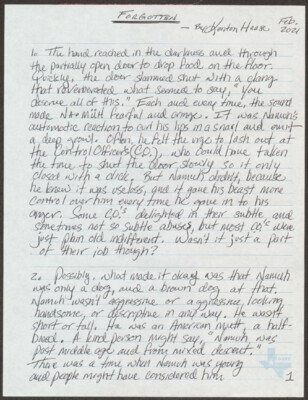 FORGOTTEN
— By: Kenton Haase
Feb, 2021
1. The hand reached in the darkness and through
the partially open door to drop food on the floor.
Quickly, the door slammed shut with a clang
that reverberated what seemed to say, "You
deserve all of this." Each and every time, the sound
made Namuh fearful and angry. It was Namuh's
automatic reaction to curl his lips in a snarl and emit
a deep growl. Often, he felt the urge to lash out at
the Control Officers (CO.), who could have taken
the time to shut the door slowly so it only
closed with a click. But Namuh didn't, because
he knew it was useless, and it gave his beast more
control over him every time he gave in to his
anger. Some CO.'s delighted in their subtle, and
sometimes not so subtle abuses, but most CO.'s were
just plain old indifferent. Wasn't it just a part
of their job though?
2. Possibly, what made it okay was that Namuh
was only a dog, and a brown dog at that.
Namuh wasn't aggressive or aggressive looking,
handsome, or descriptive in any way. He wasn't
short or tall. He was an American mutt, a half-
breed. A kind person might say, "Namuh was
past middle age and from mixed descent."
There was a time when Namuh was young
and people might have considered him
1